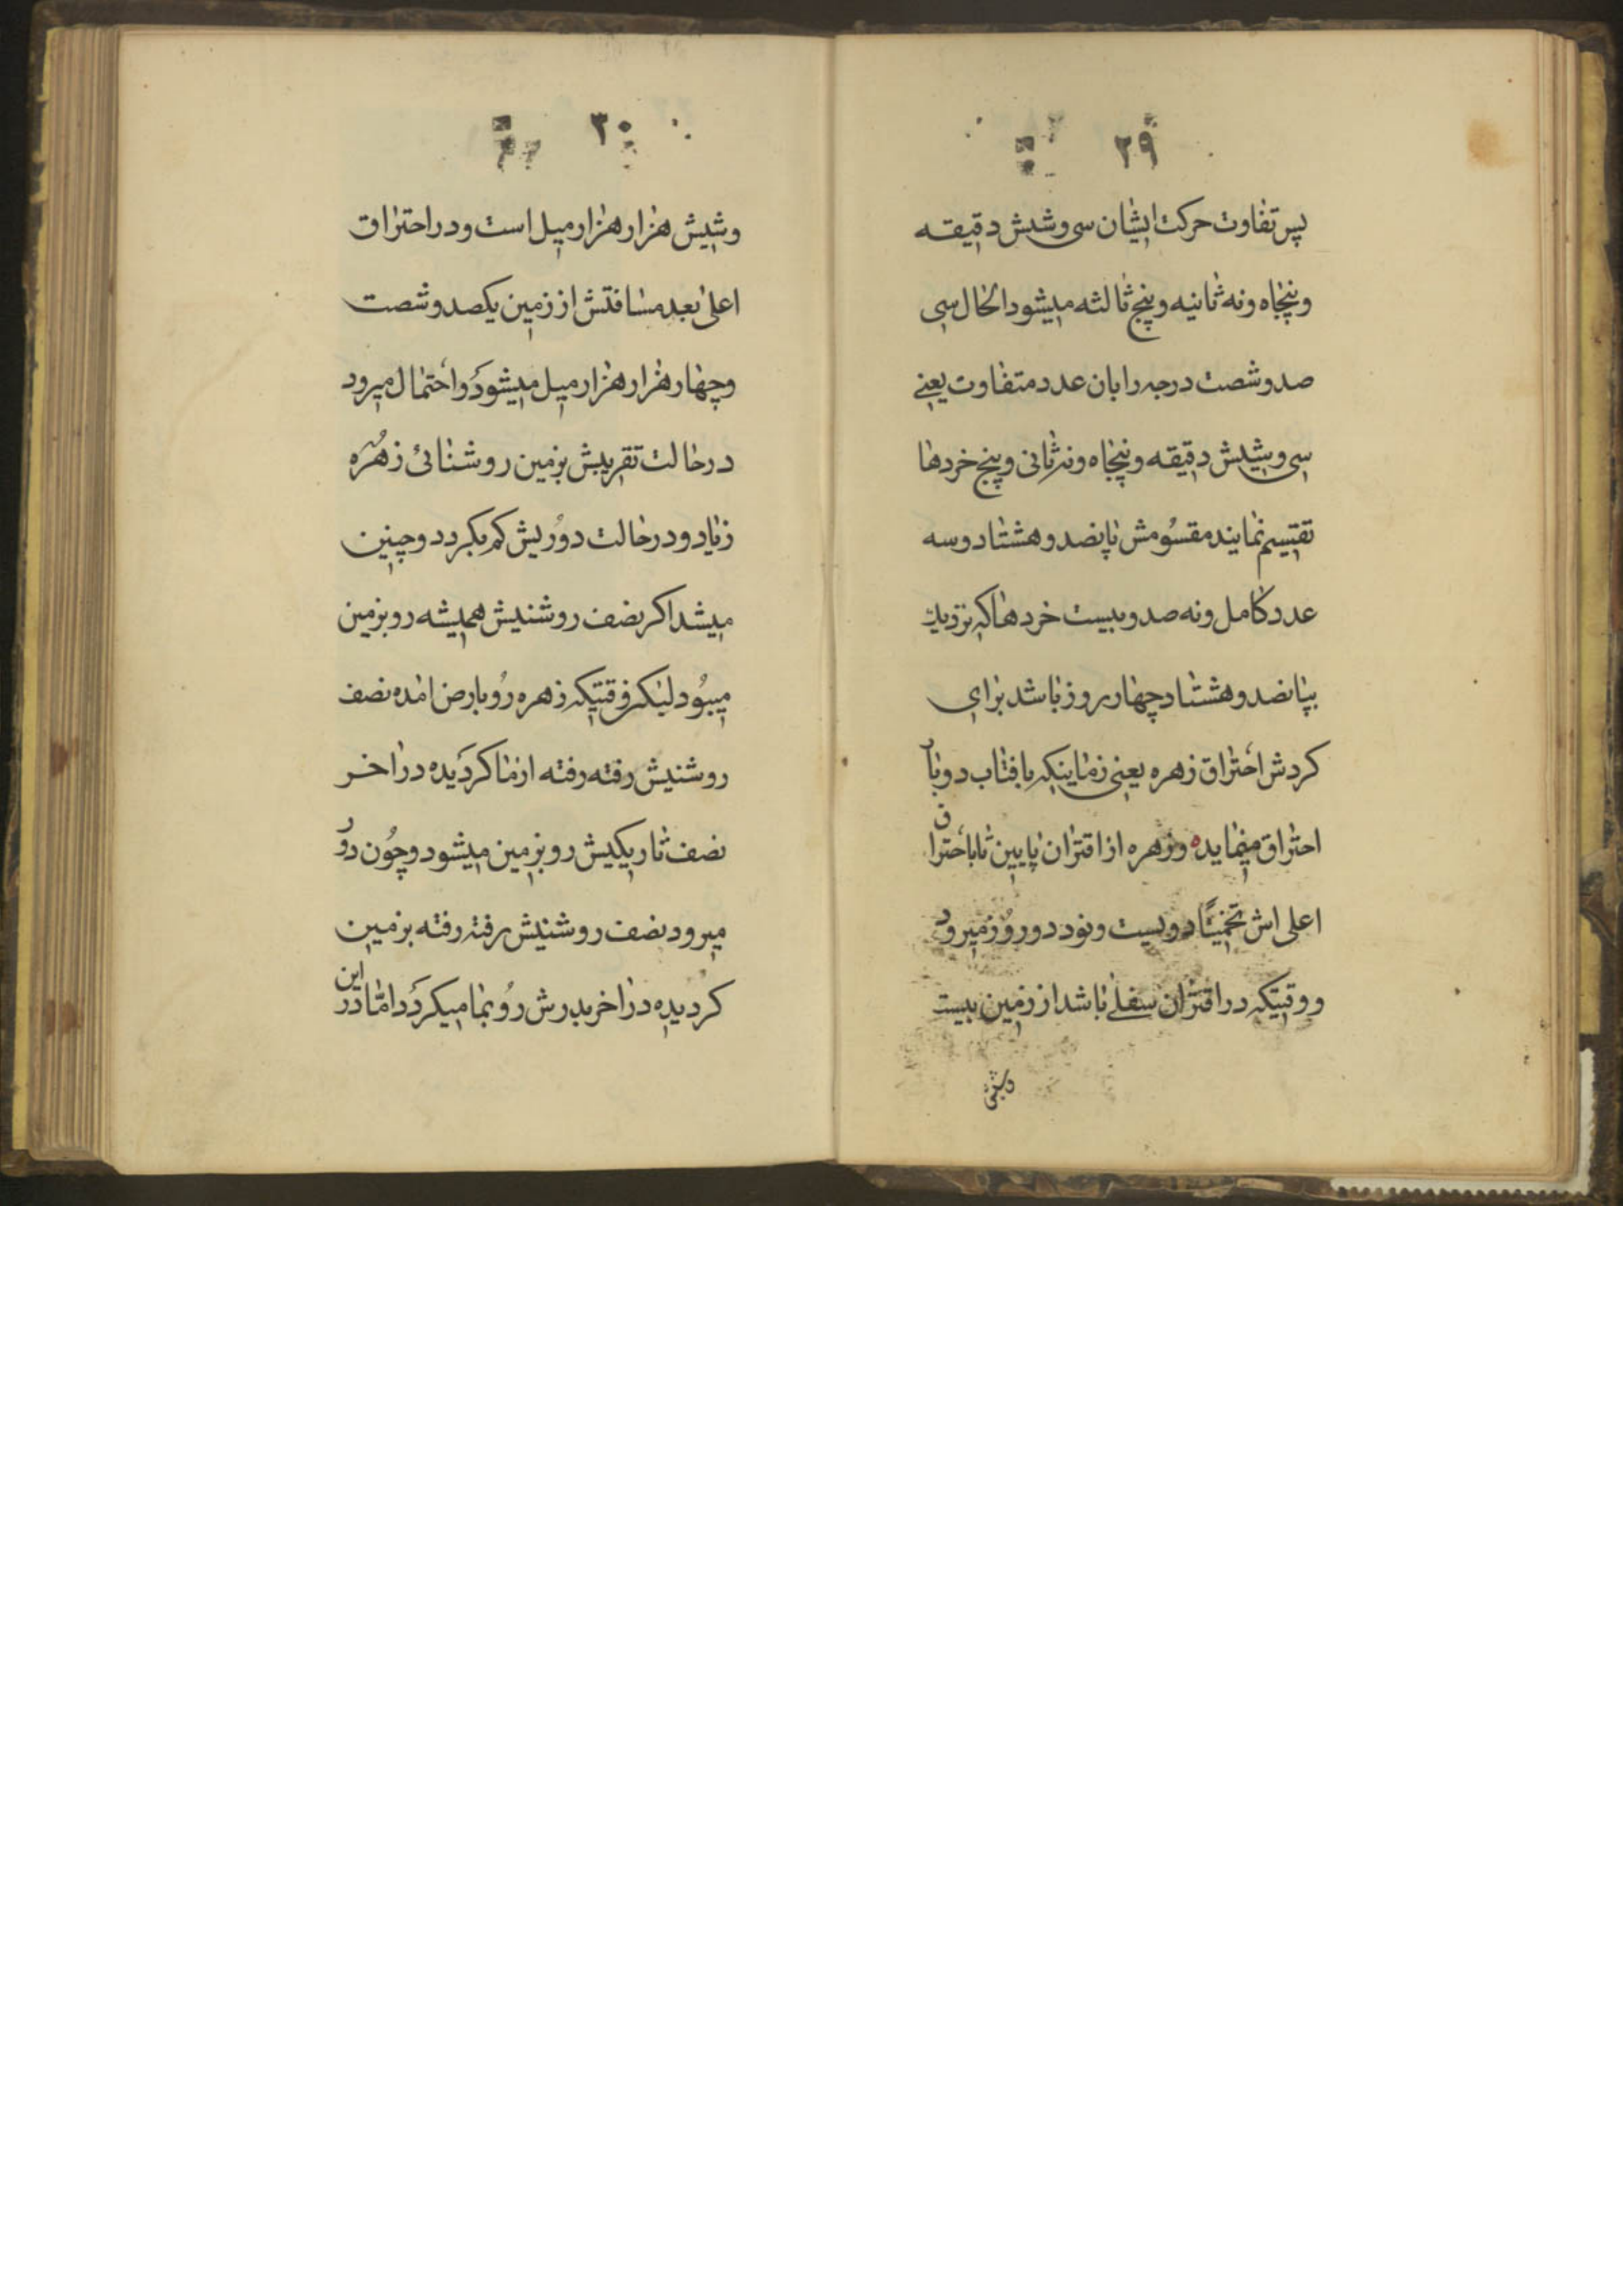 ۲۹
پس تفاوت حرکت ایشان سی و شش دقیقه
و پنجاه و نه ثانیه و پنج ثالثه میشود الحال سی
صد و شصت درجه را بان عدد متفاوت یعنی
سی و شش دقیقه و پنجاه و نه ثانی و پنج خردها
تقسیم نمایند مقسُومش پانصد و هشتاد و سه
عدد کامل و نه صد و بیست خردها که نزدیك
بپانصد و هشتاد چهار روز باشد برای
کردش احتراق زهره یعنی زمانیکه بافتاب دوبار
احتراق مینماید و زهره از اقتران پایین تا باحتراق
اعلی اش تخمینًا دویست و نود دو روز میرود
و وقتیکه در اقتران سفلی باشد از زمین بیست
وشش
۳۰
وشیش هزار هزار میل است و در احتراق
اعلی بعد مسافتش از زمین یکصد و شصت
و چهار هزار هزار میل میشود و احتمال میرود
در حالت تقریبش بزمین روشنائی زهُره
زیاد و در حالت دورُیش کم بکردد و چنین
میشد اکر نصف روشنیش همیشه رو بزمین
میبوُد لیکن وقتیکه زهره روُ بارض امده نصف
روشنیش رفته رفته از ما کردیده در اخر
نصف تاریکیش رو بزمین میشود و چوُن دوُر
میرود نصف روشنیش رفته رفته بزمین
کردیده در اخر بدرش روُ بما میکردَد امّا در این